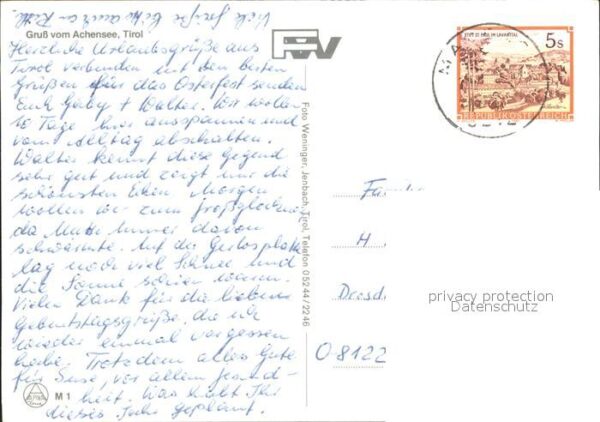 Viele Grüße bitte auch an
Gruß vom Achensee, Tirol
Herzliche Urlaubsgrüße aus
Tirol verbunden mit den besten
Grüßen für das Osterfest senden
Euch Gaby + Walter. Wir wollen
10 Tage hier ausspannen und
vom Alltag abschalten.
Walter kennt diese Gegend
sehr gut und zeigt mir die
schönsten Ecken. Morgen
wollen wir zum Großglockner
da Mutti immer davon
schwärmte. Auf der Gerlosplatte
lag noch viel Schnee und
die Sonne schien
Vielen Dank für die lieben
Geburtstagsgrüße, die wir
wieder einmal vergessen
habe. Trotzdem alles Gute
für Suse, vor allem Gesund-
heit. Was habt Ihr
dieses Jahr geplant.
M 1
Foto Weninger, Jenbach, Tirol, Telefon 05244/2246
STIFT ST. PAUL IM LAVANTTAL
5 S
REPUBLIK ÖSTERREICH
Fam
H
Dresd
O-8122
privacy protection
Datenschutz